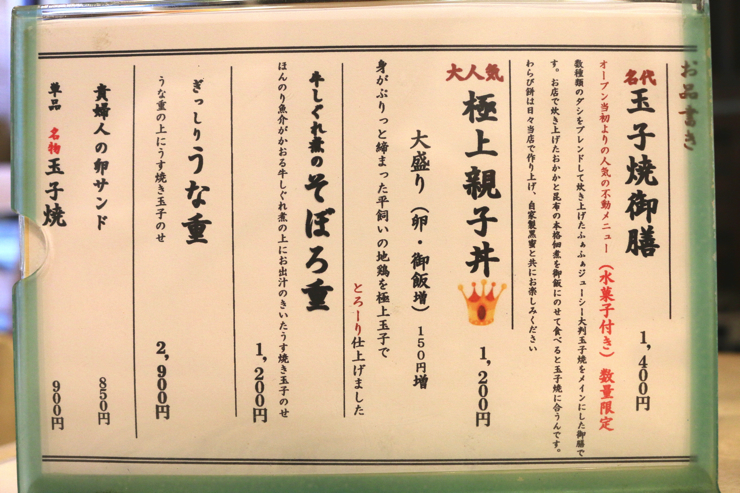 お品書き
名代 玉子焼御膳 1,400円
オープン当初よりの人気の不動メニュー（水菓子付き）数量限定
数種類のダシをブレンドして炊き上げたふぁふぁジューシー大判玉子焼をメインにした御膳で
す。お店で炊き上げたおかかと昆布の本格佃煮を御飯にのせて食べると玉子焼に合うんです。
わらび餅は日々当店で作り上げ、自家製黒蜜と共にお楽しみください
大人気 極上親子丼 1,200円
大盛り（卵・御飯増）150円増
身がぷりっと締まった平飼いの地鶏を極上玉子で
とろーり仕上げました
牛しぐれ煮のそぼろ重 1,200円
ほんのり魚介がかおる牛しぐれ煮の上にお出汁のきいたうす焼き玉子のせ
ぎっしりうな重 2,900円
うな重の上にうす焼き玉子のせ
貴婦人の卵サンド 850円
単品 名物玉子焼 900円